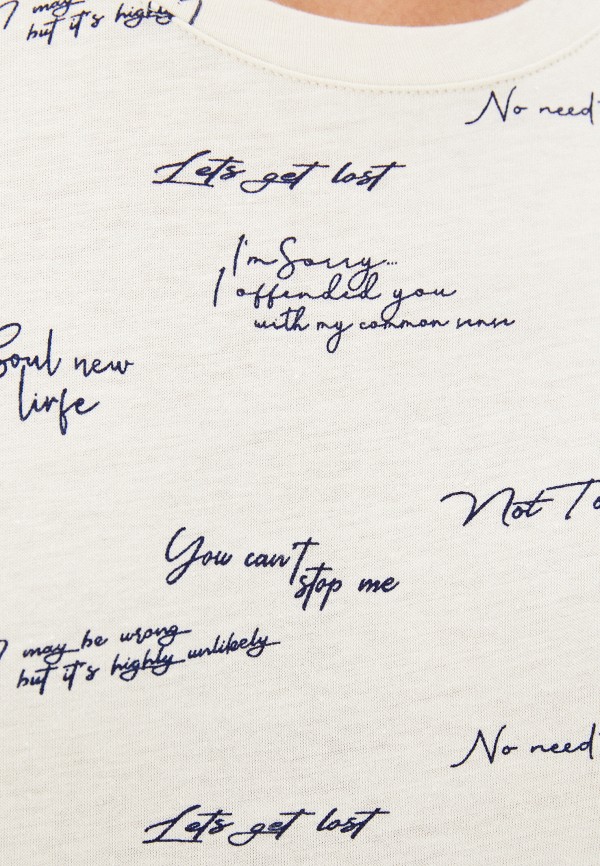 I may
but it's highly
No need
Lets get lost
I'm Sorry...
I offended you
with my common sense
Soul new
lirfe
Not To
You can't
stop me
I may be wrong
but it's highly unlikely
No need
Lets get lost